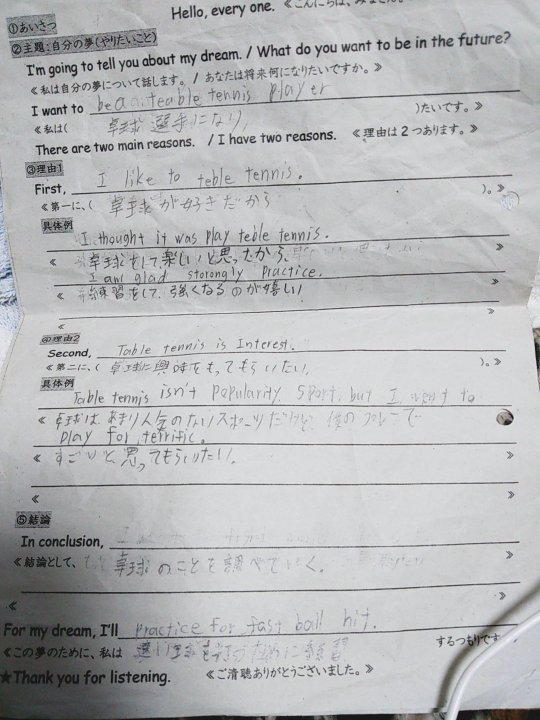 Hello, every one. 《こんにちは、みなさん。
①あいさつ
②主題:自分の夢(やりたいこと)
I'm going to tell you about my dream. / What do you want to be in the future?
《私は自分の夢について話します。 / あなたは将来何になりたいですか。》
I want to be a teable tennis player
《私は( 卓球選手になり )たいです。》
There are two main reasons. / I have two reasons. 《理由は2つあります。》
③理由1
First, I like to teble tennis.
《第一に、( 卓球が好きだから )。》
具体例
I thought it was play teble tennis.
《卓球をして楽しいと思ったから、 》
I am glad storongly practice.
《練習をして、強くなるのが嬉しい 》
《 》
④理由2
Second, Table tennis is Interest.
《第二に、( 卓球に興味をもってもらいたい。 )。》
具体例
Table tennis isn't popularity sport, but I want to
《卓球は、あまり人気のないスポーツだけど、僕の 》
play for terrific.
《すごいと思ってもらいたい。 》
《 》
⑤結論
In conclusion,
《結論として、 卓球のことを調べていく。 》
《 》
For my dream, I'll practice for fast ball hit.
《この夢のために、私は 速い球を打つために練習 するつもりです
★Thank you for listening. 《ご清聴ありがとうございました。》